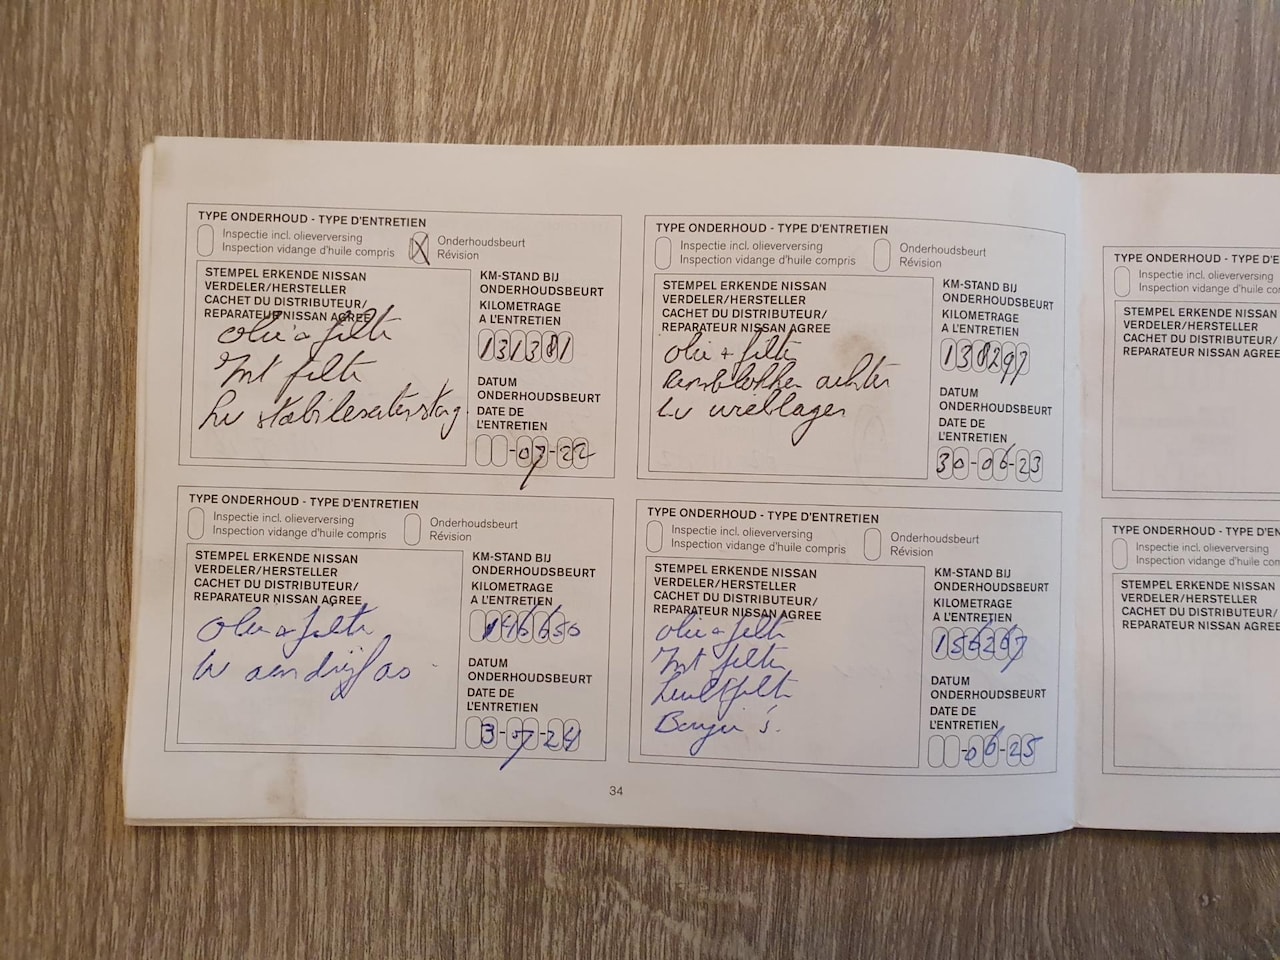 TYPE ONDERHOUD - TYPE D'ENTRETIEN
Inspectie incl. olieverversing
Inspection vidange d'huile compris
X
Onderhoudsbeurt
Révision
STEMPEL ERKENDE NISSAN
VERDELER/HERSTELLER
CACHET DU DISTRIBUTEUR/
REPARATEUR NISSAN AGREE
olie + filter
Int filter
KM-STAND BIJ
ONDERHOUDSBEURT
KILOMETRAGE
A L'ENTRETIEN
131381
DATUM
ONDERHOUDSBEURT
DATE DE
L'ENTRETIEN
-07-22
TYPE ONDERHOUD - TYPE D'ENTRETIEN
Inspectie incl. olieverversing
Inspection vidange d'huile compris
Onderhoudsbeurt
Révision
STEMPEL ERKENDE NISSAN
VERDELER/HERSTELLER
CACHET DU DISTRIBUTEUR/
REPARATEUR NISSAN AGREE
olie + filter
Remblokken achter
LV wiellager
KM-STAND BIJ
ONDERHOUDSBEURT
KILOMETRAGE
A L'ENTRETIEN
138297
DATUM
ONDERHOUDSBEURT
DATE DE
L'ENTRETIEN
30-06-23
TYPE ONDERHOUD - TYPE D'ENTRETIEN
Inspectie incl. olieverversing
Inspection vidange d'huile compris
Onderhoudsbeurt
Révision
STEMPEL ERKENDE NISSAN
VERDELER/HERSTELLER
CACHET DU DISTRIBUTEUR/
REPARATEUR NISSAN AGREE
olie + filter
LV aandrijfas
KM-STAND BIJ
ONDERHOUDSBEURT
KILOMETRAGE
A L'ENTRETIEN
146650
DATUM
ONDERHOUDSBEURT
DATE DE
L'ENTRETIEN
3-07-24
TYPE ONDERHOUD - TYPE D'ENTRETIEN
Inspectie incl. olieverversing
Inspection vidange d'huile compris
Onderhoudsbeurt
Révision
STEMPEL ERKENDE NISSAN
VERDELER/HERSTELLER
CACHET DU DISTRIBUTEUR/
REPARATEUR NISSAN AGREE
olie + filter
Int filter
Luchtfilter
Bougie's.
KM-STAND BIJ
ONDERHOUDSBEURT
KILOMETRAGE
A L'ENTRETIEN
156267
DATUM
ONDERHOUDSBEURT
DATE DE
L'ENTRETIEN
-06-25
34
TYPE ONDERHOUD - TYPE D'E
Inspectie incl. olieverversing
Inspection vidange d'huile com
STEMPEL ERKENDE NISSAN
VERDELER/HERSTELLER
CACHET DU DISTRIBUTEUR/
REPARATEUR NISSAN AGREE
TYPE ONDERHOUD - TYPE D'EN
Inspectie incl. olieverversing
Inspection vidange d'huile com
STEMPEL ERKENDE NISSAN
VERDELER/HERSTELLER
CACHET DU DISTRIBUTEUR/
REPARATEUR NISSAN AGREE